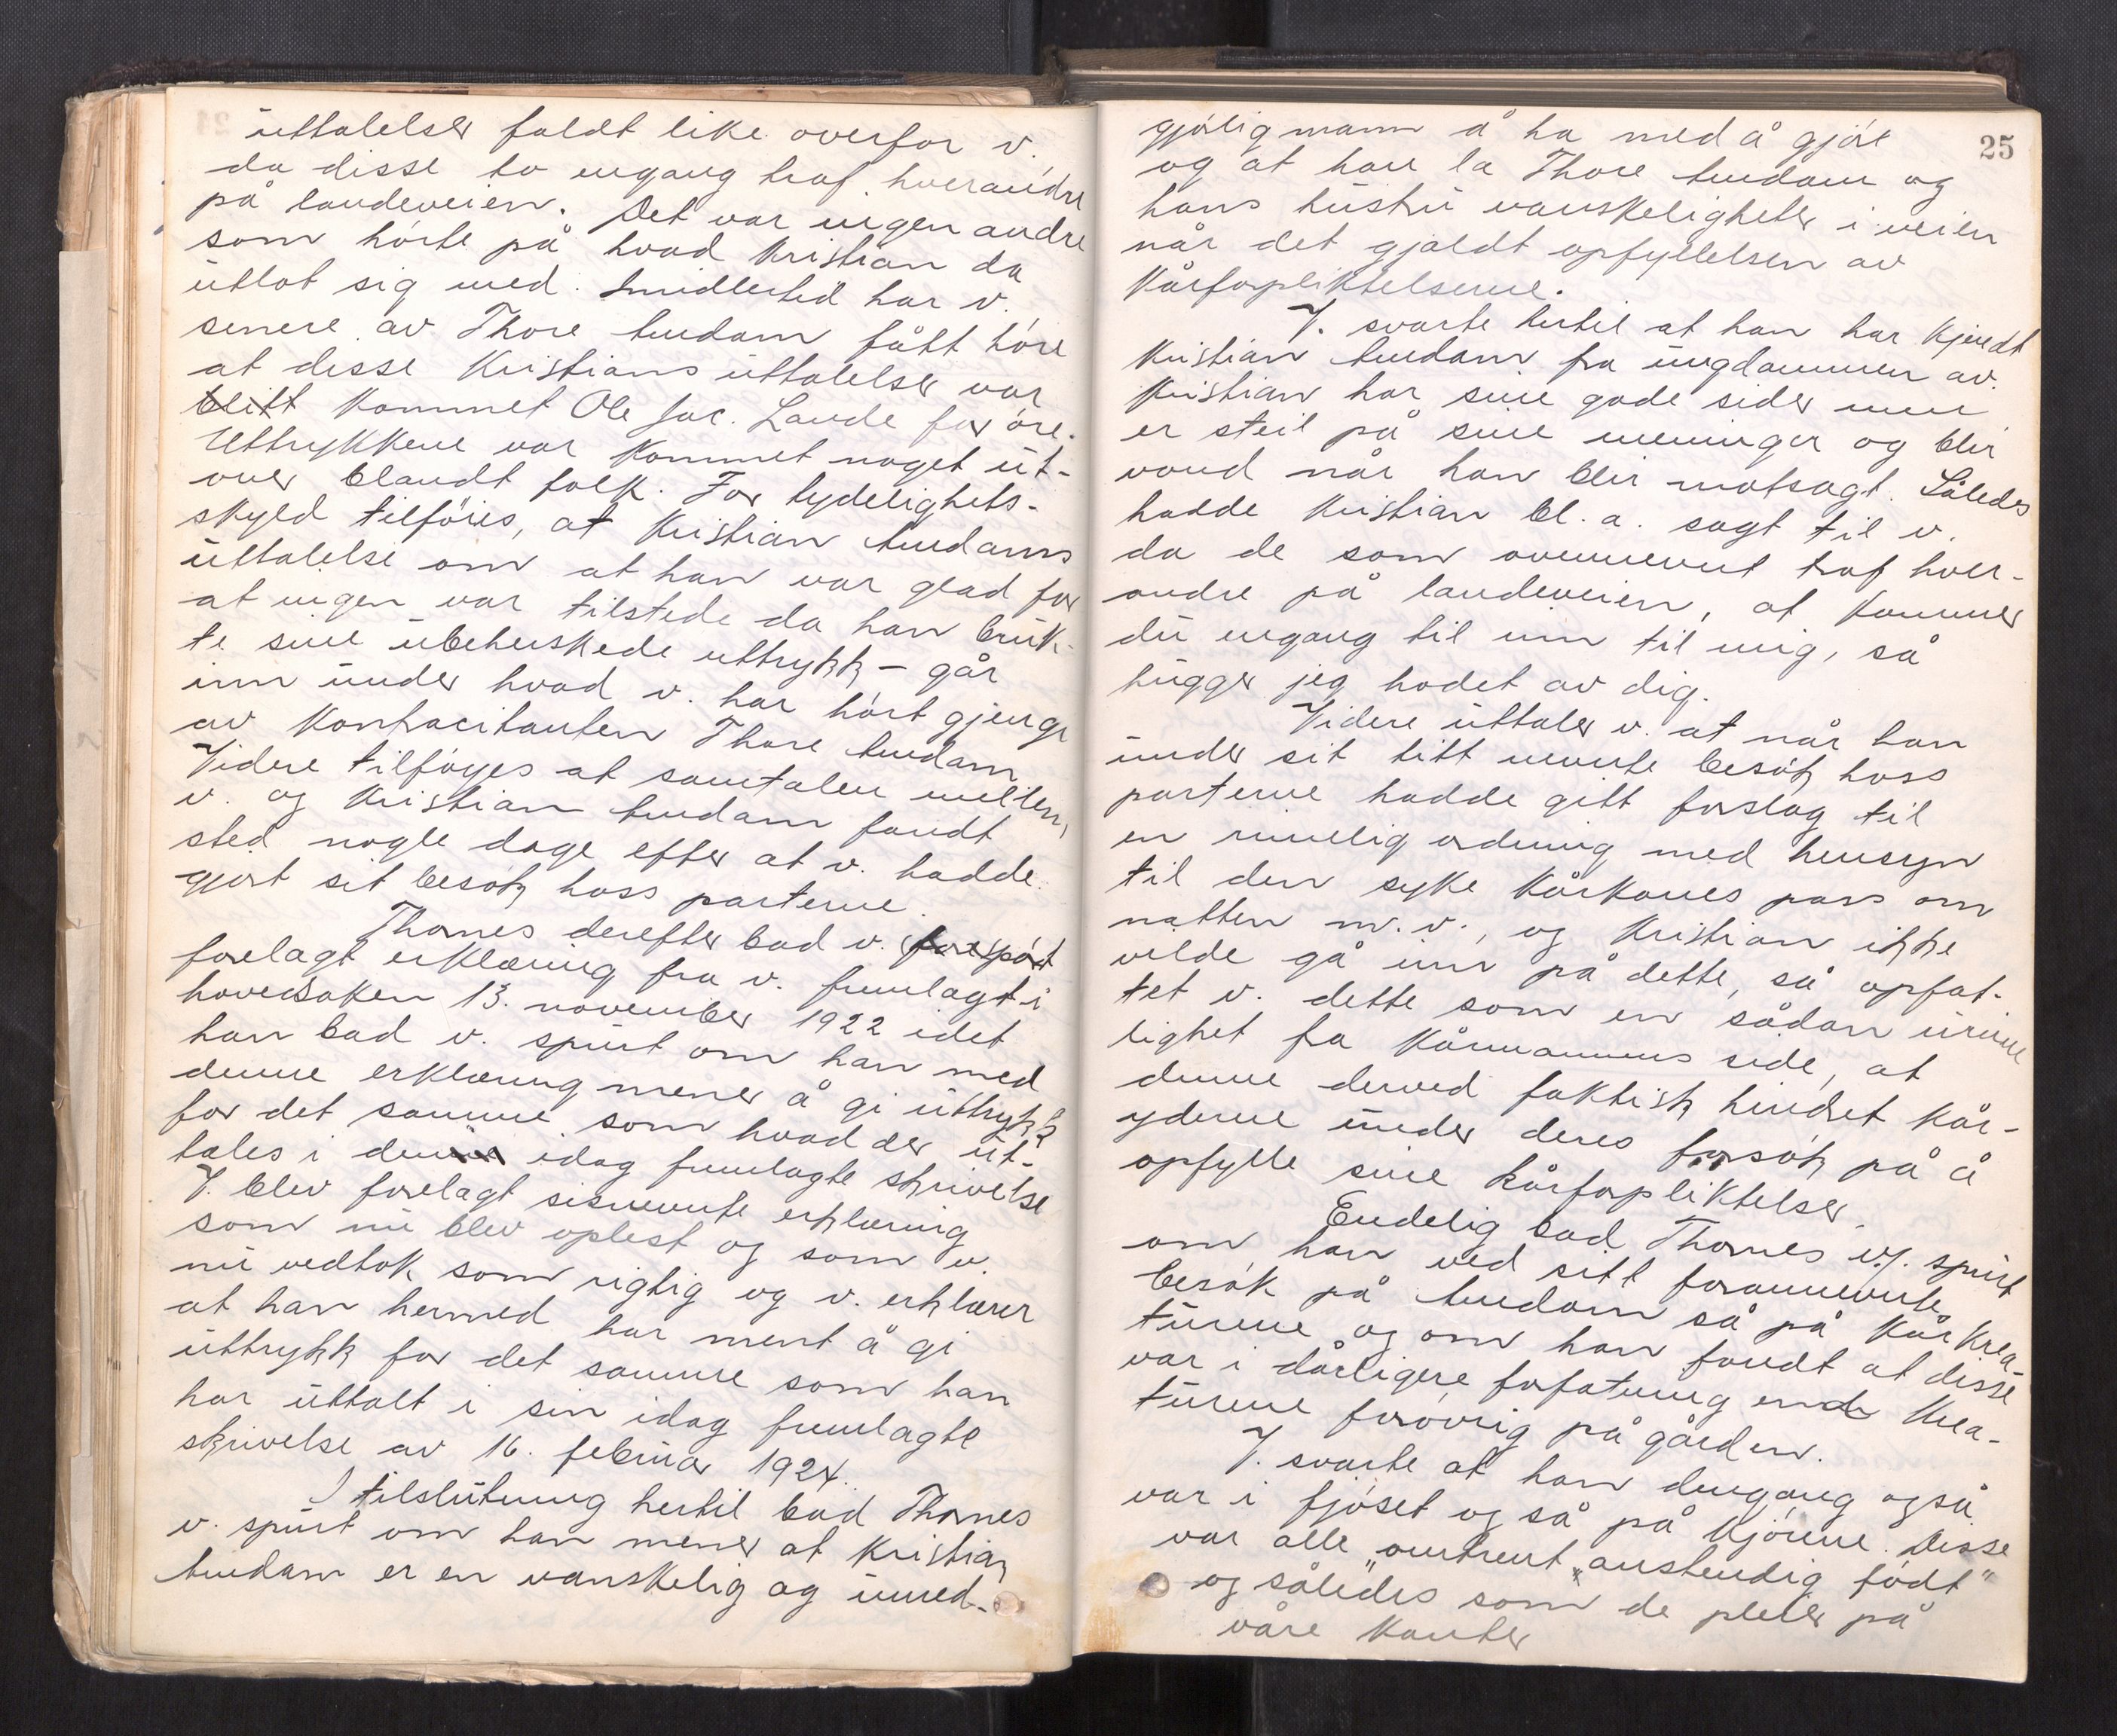 uttalelser faldt like overfor v.
da disse to engang traf hverandre
på landeveien. Det var ingen andre
som hörte på hvad Kristian da
utlot sig med. Imidlertid har v.
senere av Thore Lundam fått höre
at disse Kristians uttalelser var
blitt kommet Ole Jac. Lande for öre.
Uttrykkene var kommet noget ut-
over blandt folk. For tydelighets-
skyld tilföres, at Kristian Lundams
uttalelse om at han var glad for
at ingen var tilstede da han bruk-
te sine ubeherskede uttrykk – går
inn under hvad v. har hört gjengi
av kontracitanten Thore Lundam
Videre tilföyes at samtalen mellem
v. og Kristian Lundam fandt
sted nogle dage efter at v. hadde
gjort sit besök hoss parterne.
Thomes derefter bad v. forespört
forelagt erklæring fra v. fremlagt i
hovedsaken 13. november 1922 idet
han bad v. spurt om han med
denne erklæring mener å gi uttrykk
for det samme som hvad der ut-
tales i den idag fremlagte skrivelse?
V. blev forelagt sisnevnte erklæring
som nu blev oplest og som v.
nu vedtok som rigtig og v. erklærer
at han hermed har ment å gi
uttrykk for det samme som han
har uttalt i sin idag fremlagte
skrivelse av 16. februar 1924.
I tilslutning hertil bad Thomes
v. spurt om han mener at Kristian
Lundam er en vanskelig og umed-
25
gjörlig mann å ha med å gjöre
og at han la Thore Lundam og
hans hustru vanskeligheter i veien
når det gjaldt opfyllelsen av
kårforpliktelserne.
V. svarte hertil at han har kjendt
Kristian Lundam fra ungdommen av.
Kristian har sine gode sider men
er steil på sine meninger og blir
vond når han blir motsagt. Således
hadde Kristian bl. a. sagt til v.
da de som ovennevnt traf hver-
andre på landeveien, at kommer
du engang til inn til mig, så
hugger jeg hodet av dig.
Videre uttaler v. at når han
under sit titt nevnte besök hoss
parterne hadde gitt forslag til
en rimelig ordning med hensyn
til den syke kårkones pass om
natten m. v., og Kristian ikke
vilde gå inn på dette, så opfat-
tet v. dette som en sådan urime
lighet fra kårmannens side, at
denne derved faktisk hindret kår-
yderne under deres forsök på å
opfylle sine kårforpliktelser.
Endelig bad Thomes v. spurt
om han ved sitt forannevnte
besök på Lundam så på kårkrea-
turene og om han fandt at disse
var i dårligere forfatning end krea-
turene forövrig på gården.
V. svarte at han dengang også
var i fjöset og så på kjörene. Disse
var alle „omtrent anstendig födt"
og således som de pleier på
våre kanter